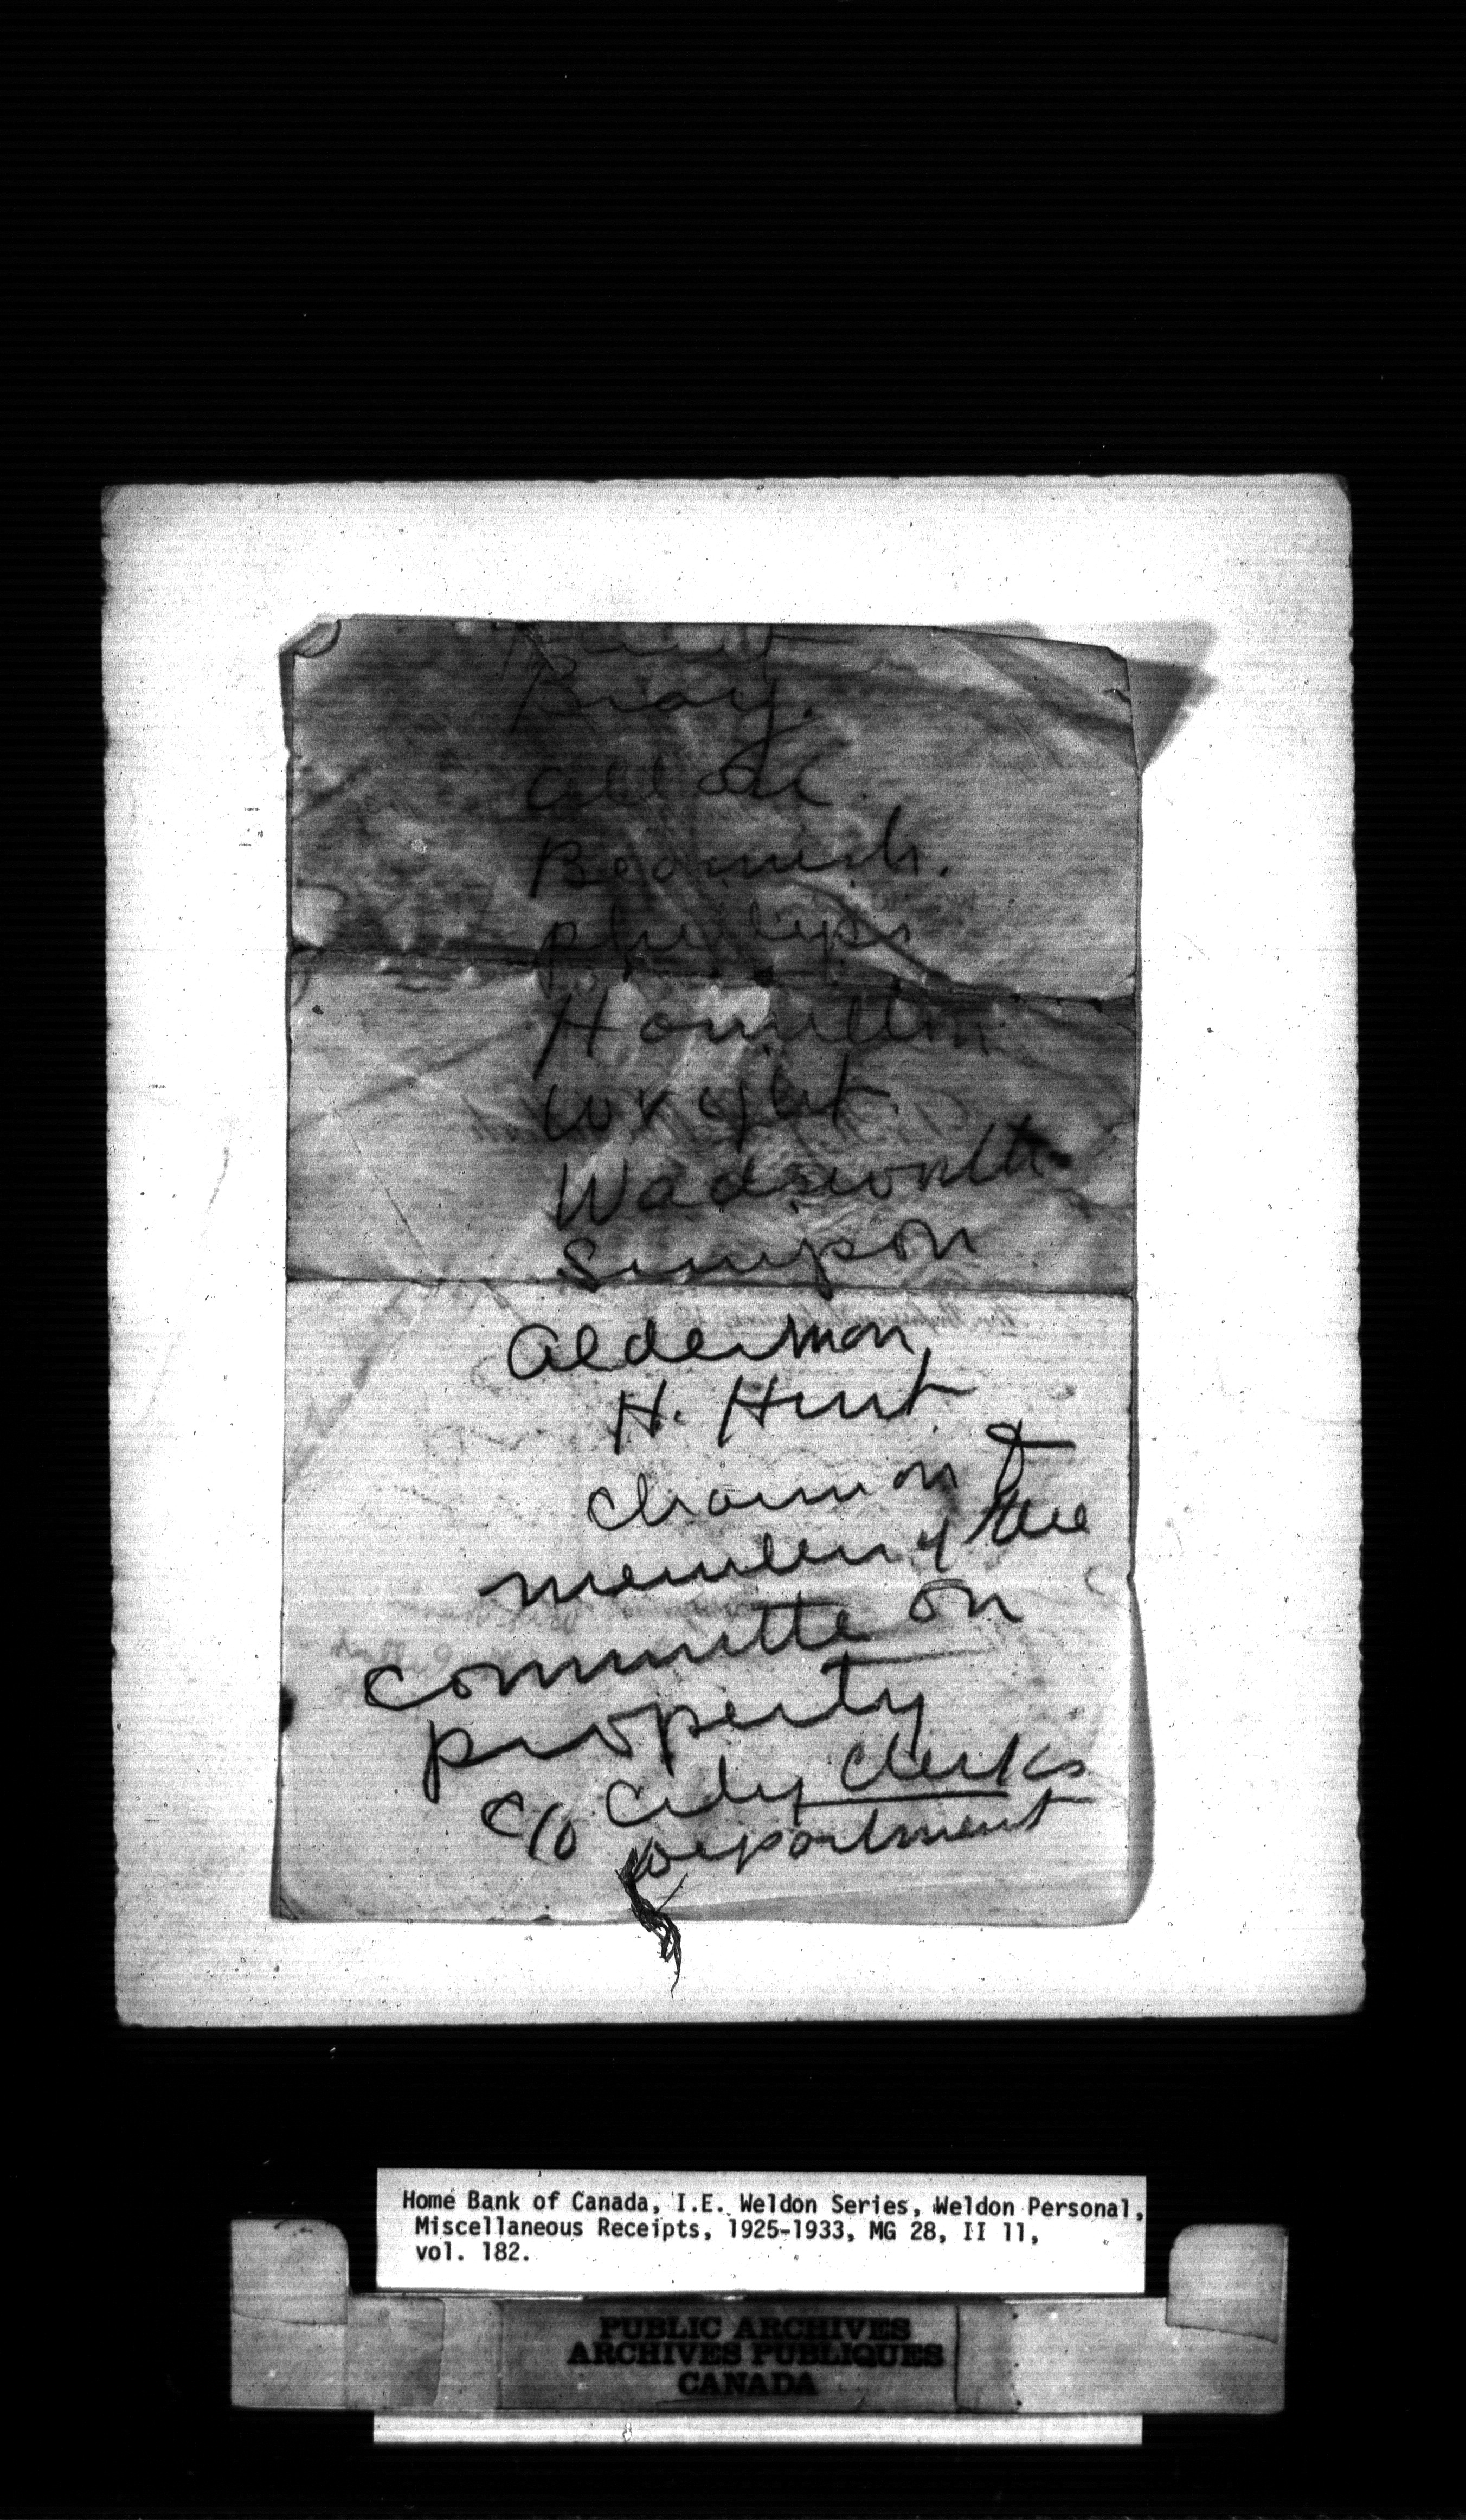 Hunt
Bray.
Allan.
Beamish.
Phillips
Hamilton
Wright.
Wadsworth
Simpson
Alderman
H. Hunt
Chairman &
members of the
Committe on
property
c/o City Clerks
Department
Home Bank of Canada, I.E. Weldon Series, Weldon Personal,
Miscellaneous Receipts, 1925-1933, MG 28, II 11,
vol. 182.
PUBLIC ARCHIVES
ARCHIVES PUBLIQUES
CANADA